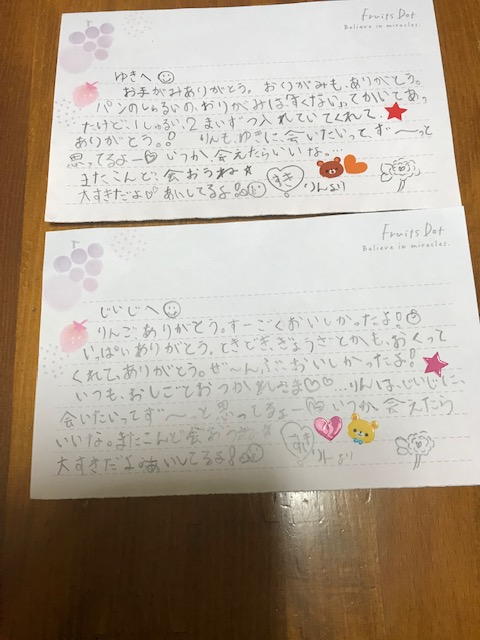 Fruits Dot
Believe in miracles.
ゆきへ
お手がみありがとう。おりがみも、ありがとう。
パンのしゅるいの、おりがみは「すくない」ってかいてあっ
たけど、1しゅるい、2まいずつ入れていてくれて、
ありがとう。!りんも、ゆきに、会いたいってず〜っと
思ってるよー♡いつか会えたらいいな。…
またこんど、会おうね☆
大すきだよ♡あいしてるよ!
すき
りんより
Fruits Dot
Believe in miracles.
じいじへ
りんご、ありがとう。すーごくおいしかったよ!
いっぱいありがとう。ときどきぎょうざとかも、おくって
くれて、ありがとう。ぜ〜んぶ、おいしかったよ!
いつも、おしごとおつかれさま♡♡…りんは、じいじに、
会いたいってず〜っと思ってるよー♡いつか会えたら
いいな。またこんど会おう
大すきだよ。あいしてるよ!
すき
りんより